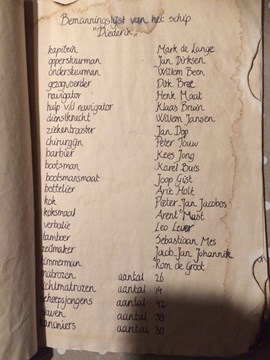 Bemanningslijst van het schip
"Diederik"
kapitein Mark de Lange
opperstuurman Jan Dirksen
onderstuurman Willem Been
gezagvoerder Dirk Bree
navigator Henk Maat
hulp v/d navigator Klaas Bruin
dienstknecht Willem Jansen
ziekentrooster Jan Dop
chirurgijn Peter Touw
barbier Kees Jong
bootsman Karel Buis
bootsmansmaat Joop Gist
bottelier Arie Holt
kok Pieter Jan Jacobs
koksmaat Arent Mast
Leo Lever
tamboer Sebastiaan Mes
zeilmaker Jacob Jan
timmerman Kom de Groot
matrozen aantal 26
aantal 14
scheepsjongens aantal 42
aantal 38
kanoniers aantal 30